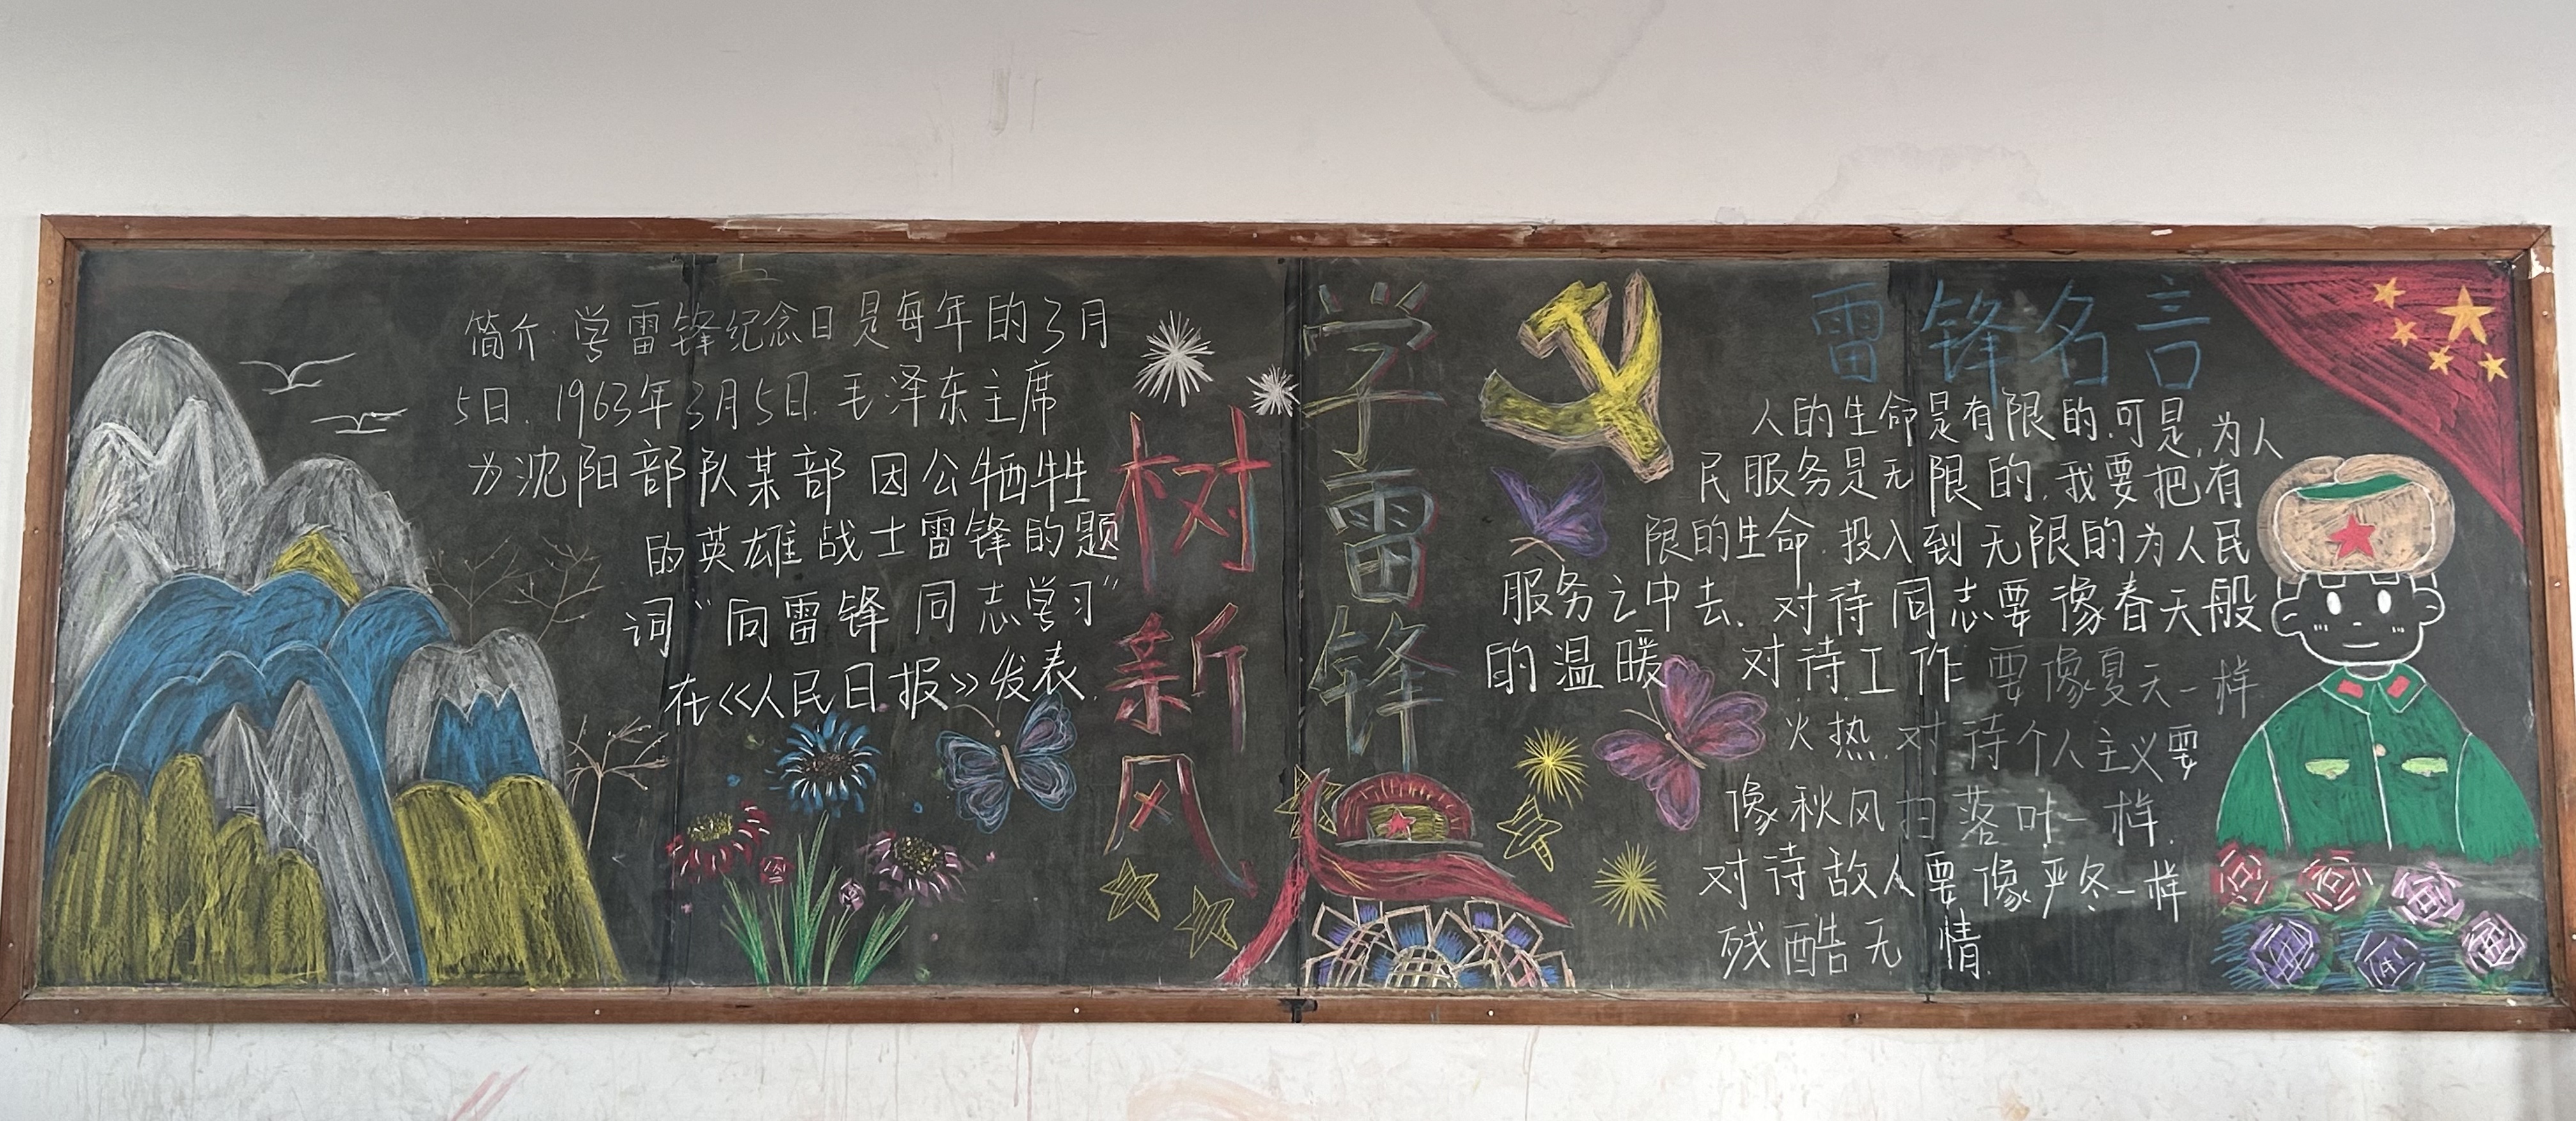 简介:学雷锋纪念日是每年的3月
5日.1963年3月5日.毛泽东主席
为沈阳部队某部因公牺牲
的英雄战士雷锋的题
词“向雷锋同志学习”
在《人民日报》发表.
树新风
学雷锋
雷锋名言
人的生命是有限的.可是,为人
民服务是无限的.我要把有
限的生命.投入到无限的为人民
服务之中去.对待同志要像春天般
的温暖 对待工作要像夏天一样
火热.对待个人主义要
像秋风扫落叶一样.
对待敌人要像严冬一样
残酷无情.